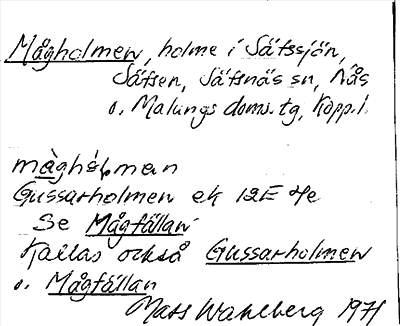 Mågholmen, holme i Sätssjön,
Sätsen, Sätsnäs sn, Nås
o. Malungs doms.tg, Kopp.l.
måghòl̥man
Gussarholmen ek 12E 4e
Se Mågfällan
Kallas också Gussarholmen
o. Mågfällan
Mats Wahlberg 1971